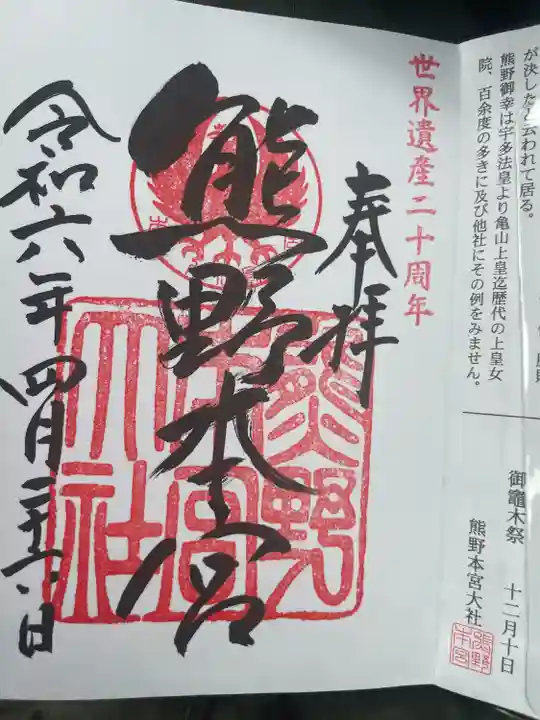 が決したと云われて居る。
熊野御幸は宇多法皇より亀山上皇迄歴代の上皇女
院、百余度の多きに及び他社にその例をみません。
御竈木祭 十二月十日
熊野本宮大社
世界遺産二十周年
奉拝
熊野本宮
熊野本宮大社
令和六年四月二十六日